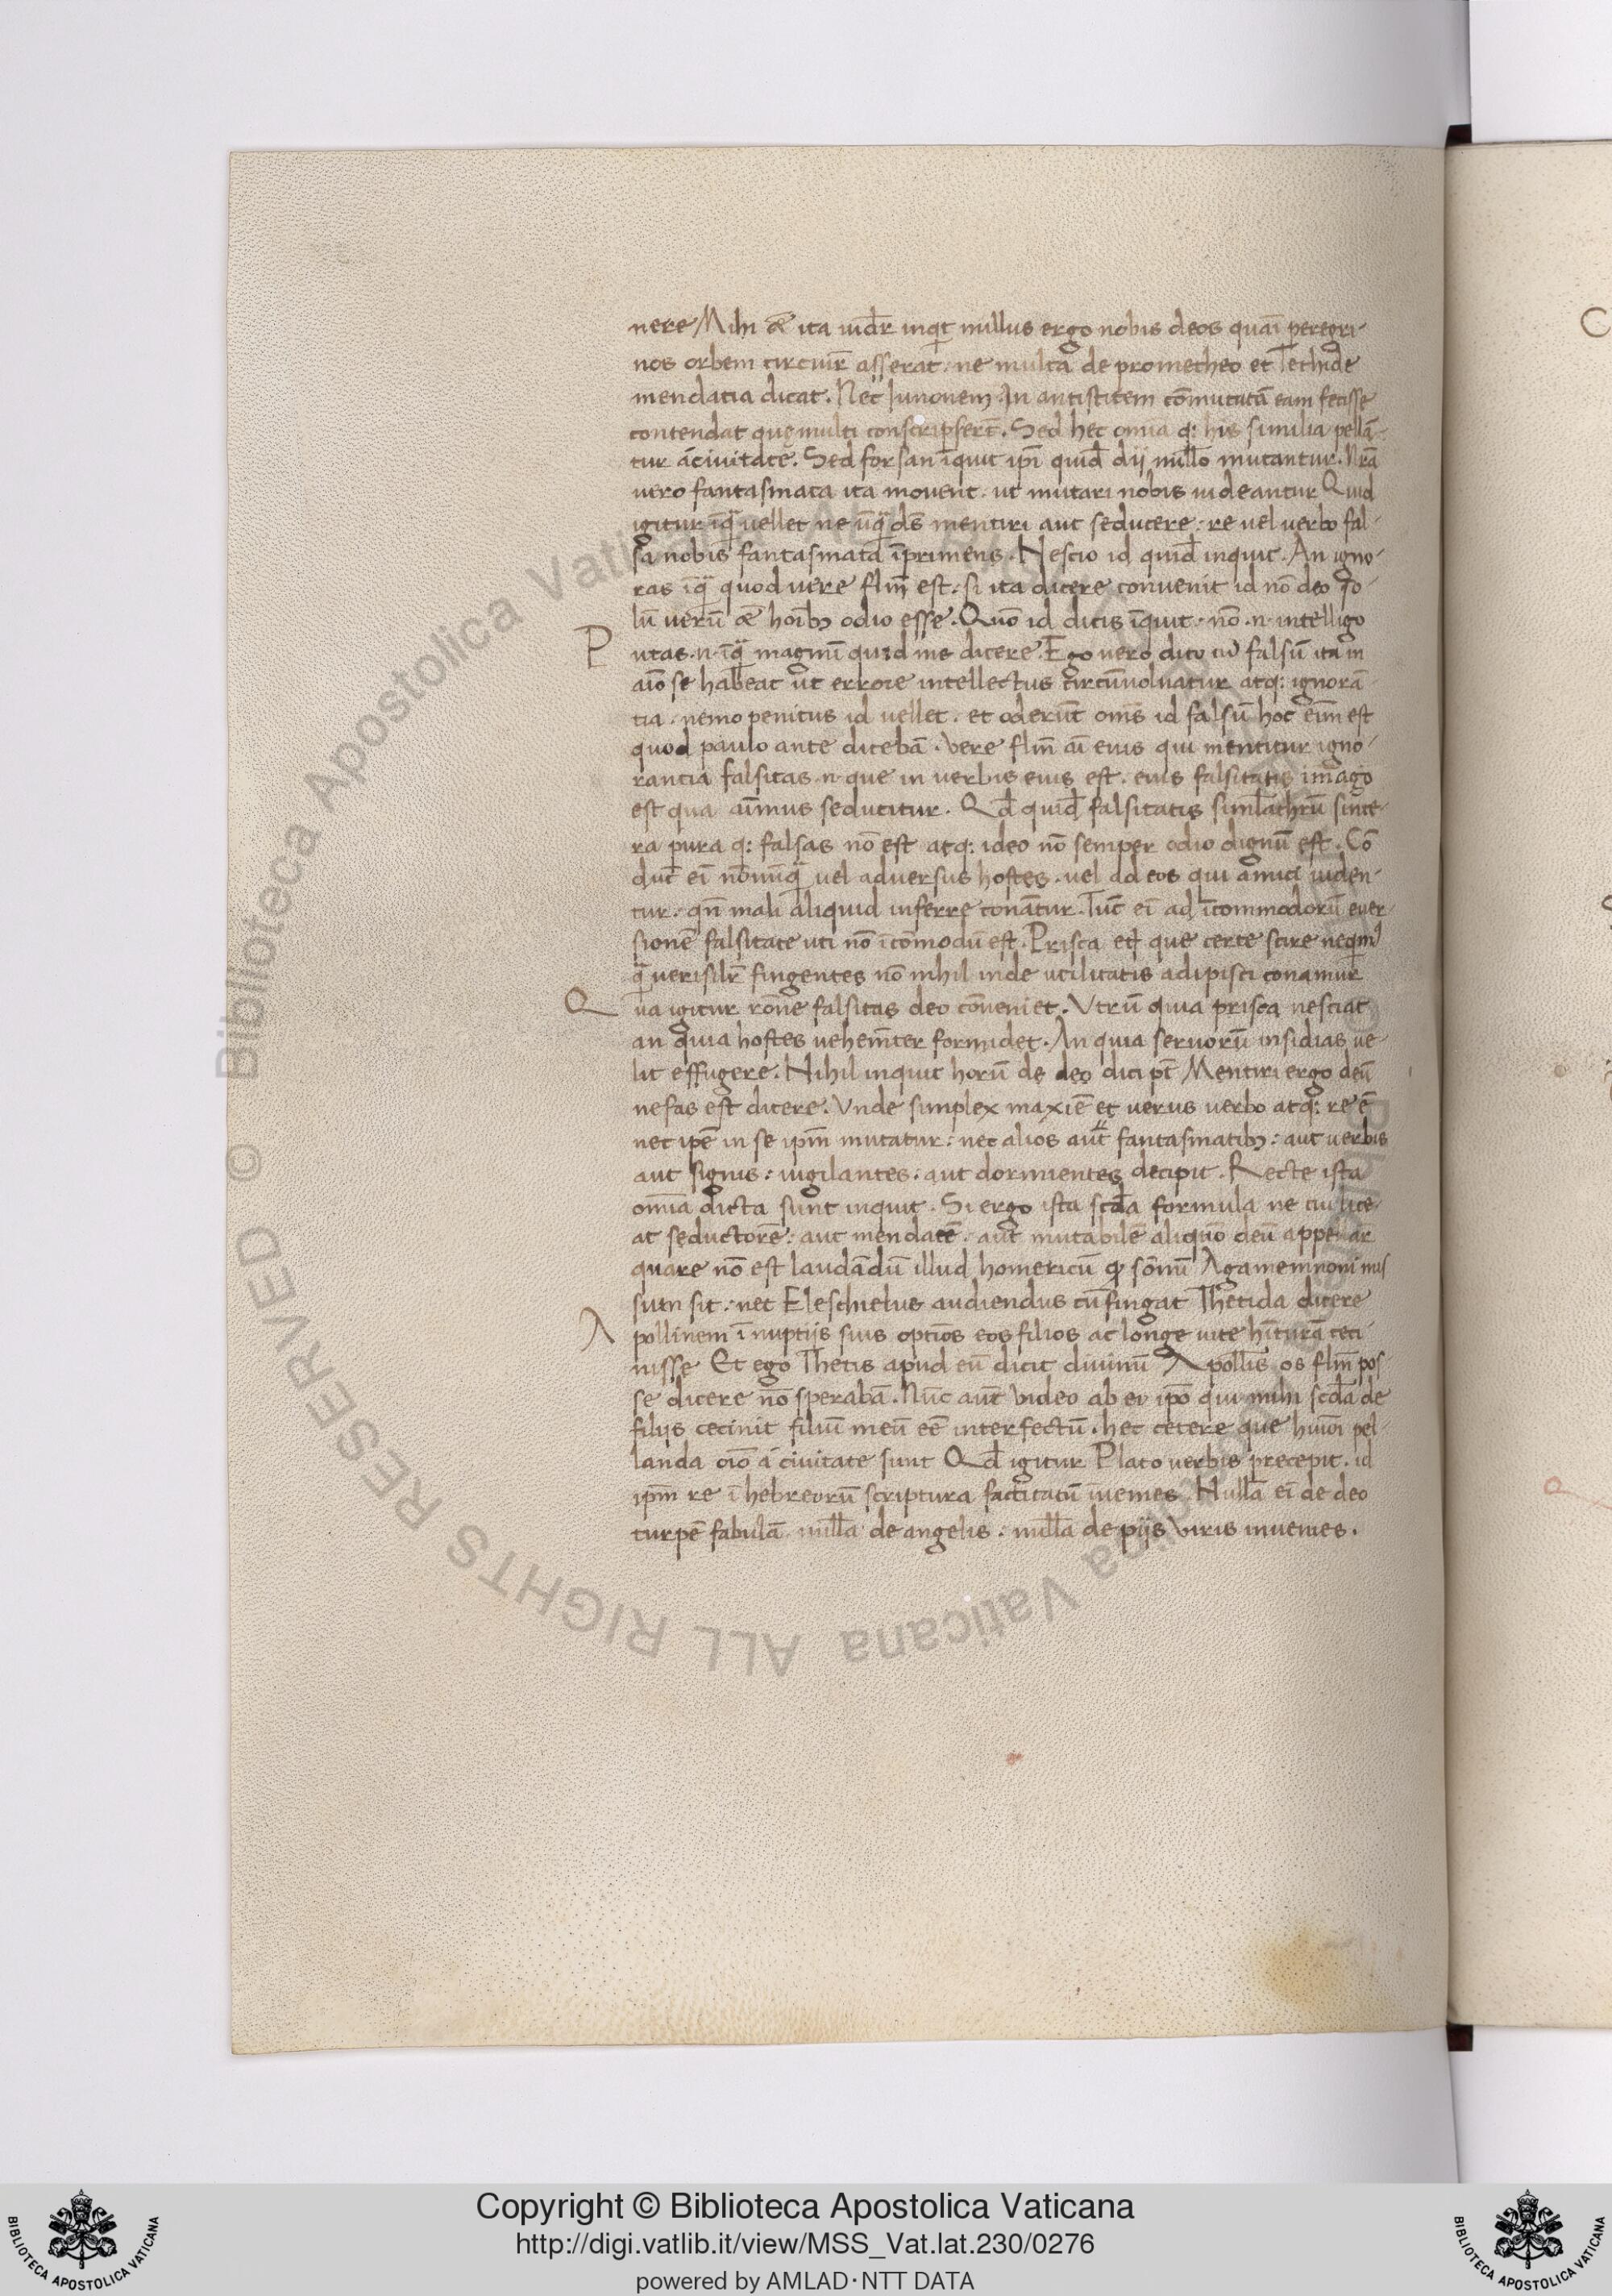 nere Mihi q̃ ita uidr̄ inqͥt nullus ergo nobis deos quaī peregri-
nos orbem circuir̄ asserat. ne multa de prometheo et Tethide
mendatia dicat. Nec Iunonem in antistitem cōmutatā eam fecisse
contendat quę multi conscripserūt. Sed hec omīa q: his similia pellā-
tur á ciuitate. Sed forsan īquit ip̄i quid̄ dij nullo mutantur. Nr̄a
uero fantasmata ita mouent. ut mutari nobis uideantur Quid
igitur īq̄ uellet ne ūq̄ ds̄ mentiri aut seducere. re uel uerbo fal-
sa nobis fantasmata īprimens. Nescio id quid̄ inquit. An igno-
ras īq̄ quod uere fl̄m est. si ita dicere convenit id nō deo so-
lū uerū q̃ hoībꝫ odio esse. Quō id dicis īquit. nō .n. intelligo
P utas .n. īq̄ magnū quid me dicere. Ego uero dico cū falsū ita in
aīo se habeat ut errore intellectus circūuoluatur atq: ignorā
tia. nemo penitus id uellet. et oderūt om̄s id falsū hoc eīm est
quod paulo ante dicebā. Vere fl̄m aī eius qui mentitur igno-
rantia falsitas .n. que in uerbis eius est. eius falsitatis imago
est qua aīmus seducitur. Qd̄ quid̄ falsitatis siml̄achrū since-
ra pura q: falsas nō est atq: ideo nō semper odio dignū est. Cō
duc̄ eī nōnūq̄ uel adversus hostes. uel ad eos qui amici uiden-
tur. qn̄ mali aliquid inferre conātur. Tūc eī ad īcommodorū euer-
sionē falsitate uti nō īcōmodū est. Prisca et̄ que certe scire neqm̄
q̄ uerisilr̄ fingentes nō nihil inde utilitatis adipisci conamur
Q ua igitur rōne falsitas deo cōueniet. Vtrū quia prisca nesciat
an quia hostes uehem̄ter formidet. An quia seruorū insidias ue-
lit effugere. Nihil inquit horū de deo dici pt̄ Mentiri ergo deū
nefas est dicere. Vnde simplex maxīe et uerus uerbo atq: re ē
nec ipē in se ipm̄ mutatur: nec alios aut̄ fantasmatibꝫ: aut uerbis
aut signis: uigilantes: aut dormientes decipit. Recte ista
omīa dicta sunt inquit. Si ergo ista scd̄a formula ne cui lice-
at seductorē: aut mendacē: aut mutabilē aliquō deū appellar̄
quare nō est laudādū illud homericū ꝙ sōnū Agamemnoni mis
sum sit. nec Eleschielus audiendus cū fingat Thetida dicere
A pollinem ī nuptijs suis optīos eos filios ac longe uite hīturā ceci-
nisse Et ego Thetis apud eū dicit diuinū Apollīs os fl̄m pos-
se dicere nō sperabā. Nūc aut̄ video ab eo ipō qui mihi scd̄a de
filijs cecinit filiū meū eē interfectū. hec cetere que huiōi pel-
landa oīo á ciuitate sunt Qd̄ igitur Plato uerbis precepit. id
ipm̄ re ī hebreorū scriptura factitatū inuenies Nulla eī de deo
turpē fabulā. nulla de angelis. nulla de pijs viris inuenies.
Copyright © Biblioteca Apostolica Vaticana
http://digi.vatlib.it/view/MSS_Vat.lat.230/0276
powered by AMLAD·NTT DATA